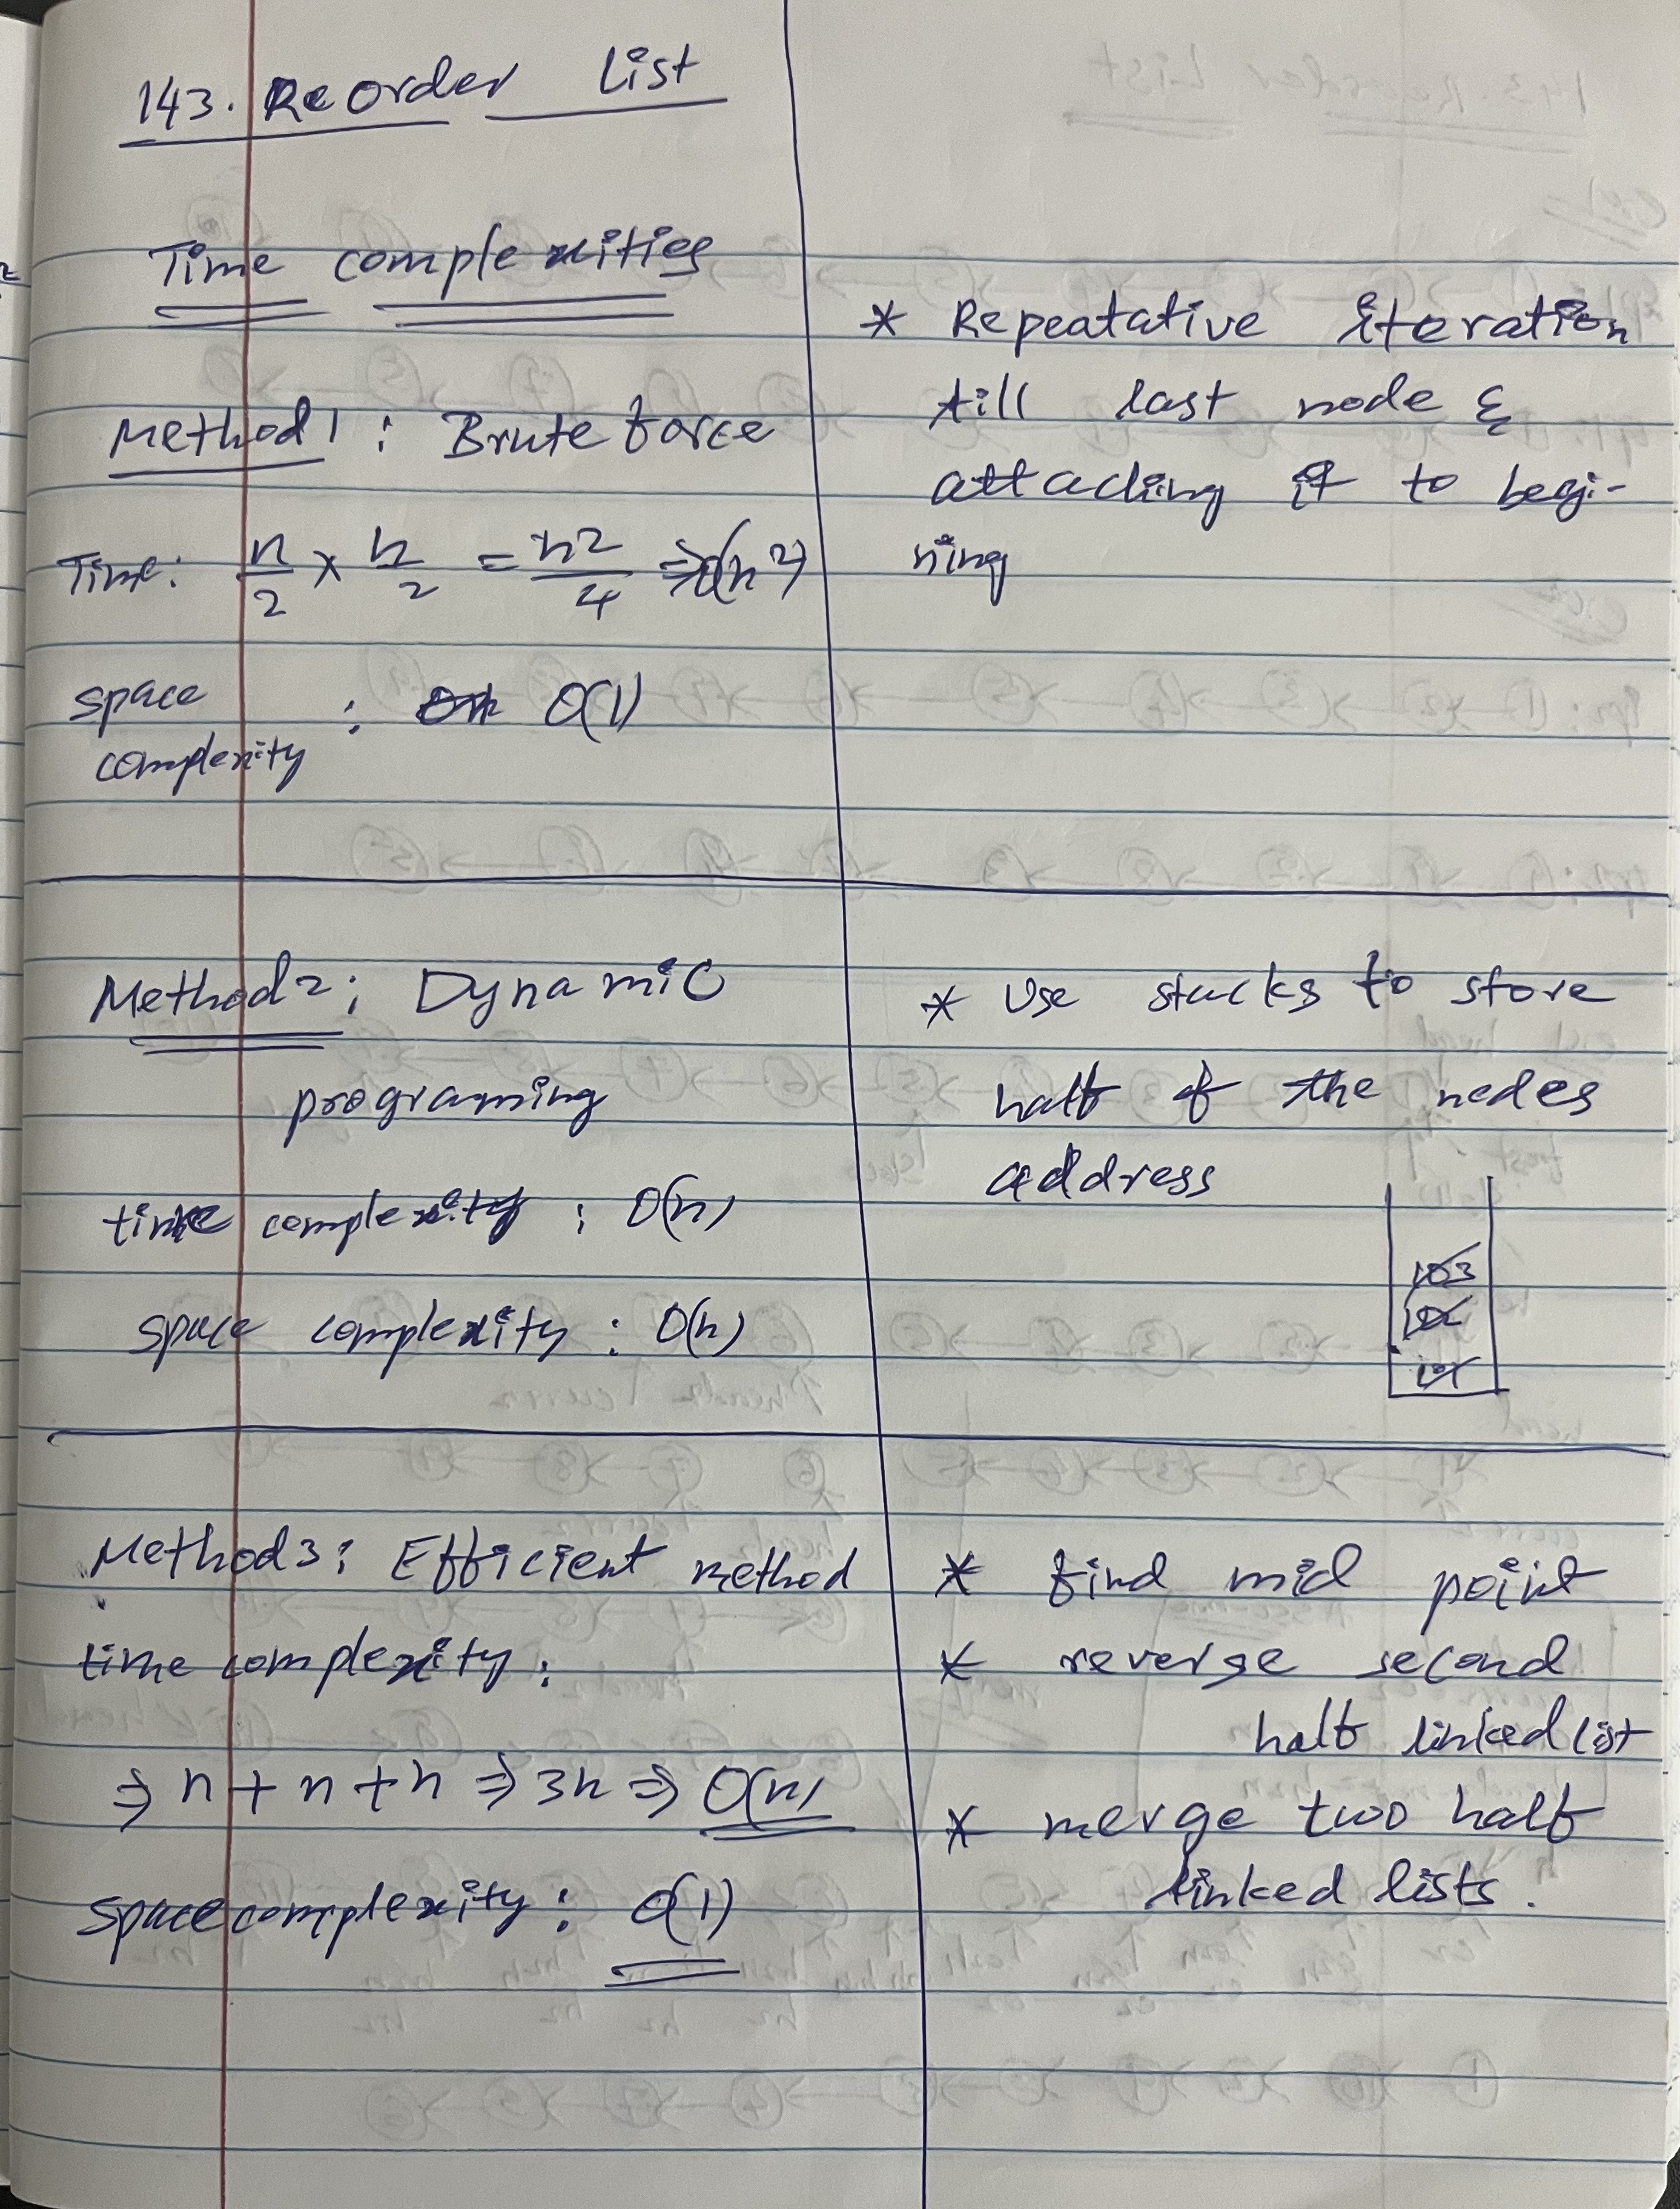 143. ReOrder List
Time complexities
Method 1 : Brute force
Time: n/2 × n/2 = n2/4 ⇒ O(n2)
space
complexity : O(1)
* Repeatative iteration
till last node &
attaching it to begi-
nning
Method 2 : Dynamic
programing
time complexity : O(n)
space complexity : O(n)
* Use stacks to store
half of the nodes
address
103
102
101
Method 3 : Efficient method
time complexity :
⇒ n + n + n ⇒ 3n ⇒ O(n)
space complexity : O(1)
* find mid point
* reverse second
half linked list
* merge two half
linked lists.